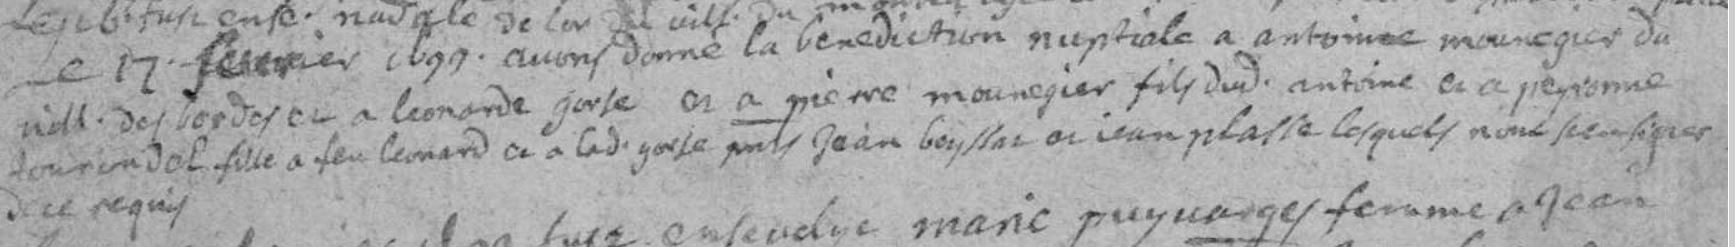 fust ensev. nadale de lor du vill. du
Le 17. feuvrier 1699. avons donné la benediction nuptiale a antoine mounegier du
vill. des bordes et a leonarde gorse et a pierre mounegier fils dud. antoine et a peyronne
tourondel fille a feu leonard et a lad. gorse pnts Jean boyssat et jean plasse lesquels n'ont sceu signer
de ce requis
fust ensevelye marie puyvarges femme a Jean